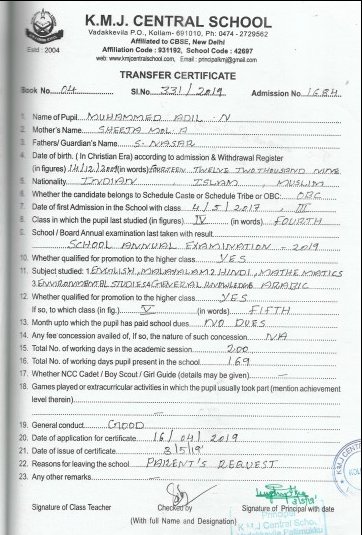 K.M.J. CENTRAL SCHOOL
Vadakkevila P.O., Kollam- 691010, Ph: 0474 - 2729562
Affiliated to CBSE, New Delhi
Affiliation Code : 931192, School Code : 42697
web: www.kmjcentralschool.com, Email : principalkmj@gmail.com
Estd : 2004
TRANSFER CERTIFICATE
Book No. 04 Sl.No. 331/2019 Admission No. 1684
1. Name of Pupil MUHAMMED ADIL . N
2. Mother's Name SHEETA MOL. A
3. Fathers/ Guardian's Name S. NASAR
4. Date of birth. ( In Christian Era) according to admission & Withdrawal Register
(in figures) 14/12/2009 (in words) TWELVE TWO THOUSAND NINE
5. Nationality INDIAN ISLAM, MUSLIM
6. Whether the candidate belongs to Schedule Caste or Schedule Tribe or OBC: OBC
7. Date of first Admission in the School with class 4/5/2017, III
8. Class in which the pupil last studied (in figures) IV (in words) FOURTH
9. School / Board Annual examination last taken with result
SCHOOL ANNUAL EXAMINATION - 2019
10. Whether qualified for promotion to the higher class YES
11. Subject studied: 1 ENGLISH, MALAYALAM 2 HINDI, MATHEMATICS
3 ENVIRONMENTAL STUDIES 4 GENERAL KNOWLEDGE ARABIC
12. Whether qualified for promotion to the higher class YES
If so, to which class (in fig.) V (in words) FIFTH
13. Month upto which the pupil has paid school dues NO DUES
14. Any fee concession availed of, If so, the nature of such concession NA
15. Total No. of working days in the academic session 200
16. Total No. of working days pupil present in the school 169
17. Whether NCC Cadet / Boy Scout / Girl Guide (details may be given)
18. Games played or extracurricular activities in which the pupil usually took part (mention achievement
level therein)
19. General conduct GOOD
20. Date of application for certificate 16/04/2019
21. Date of issue of certificate 3/5/19
22. Reasons for leaving the school PARENT'S REQUEST
23. Any other remarks
Signature of Class Teacher Checked by Signature of Principal with date
(With full Name and Designation)
Principal
K M J Central Schoo